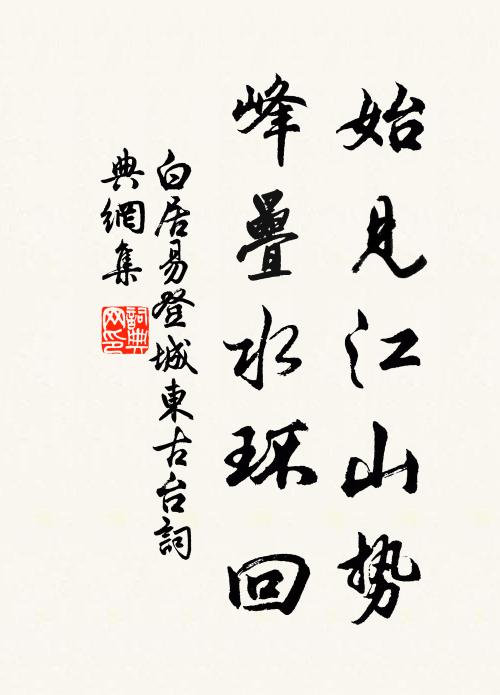 始見江山勢
峰疊水环回
白居易登城東古台詞
典網集
詞典
网印